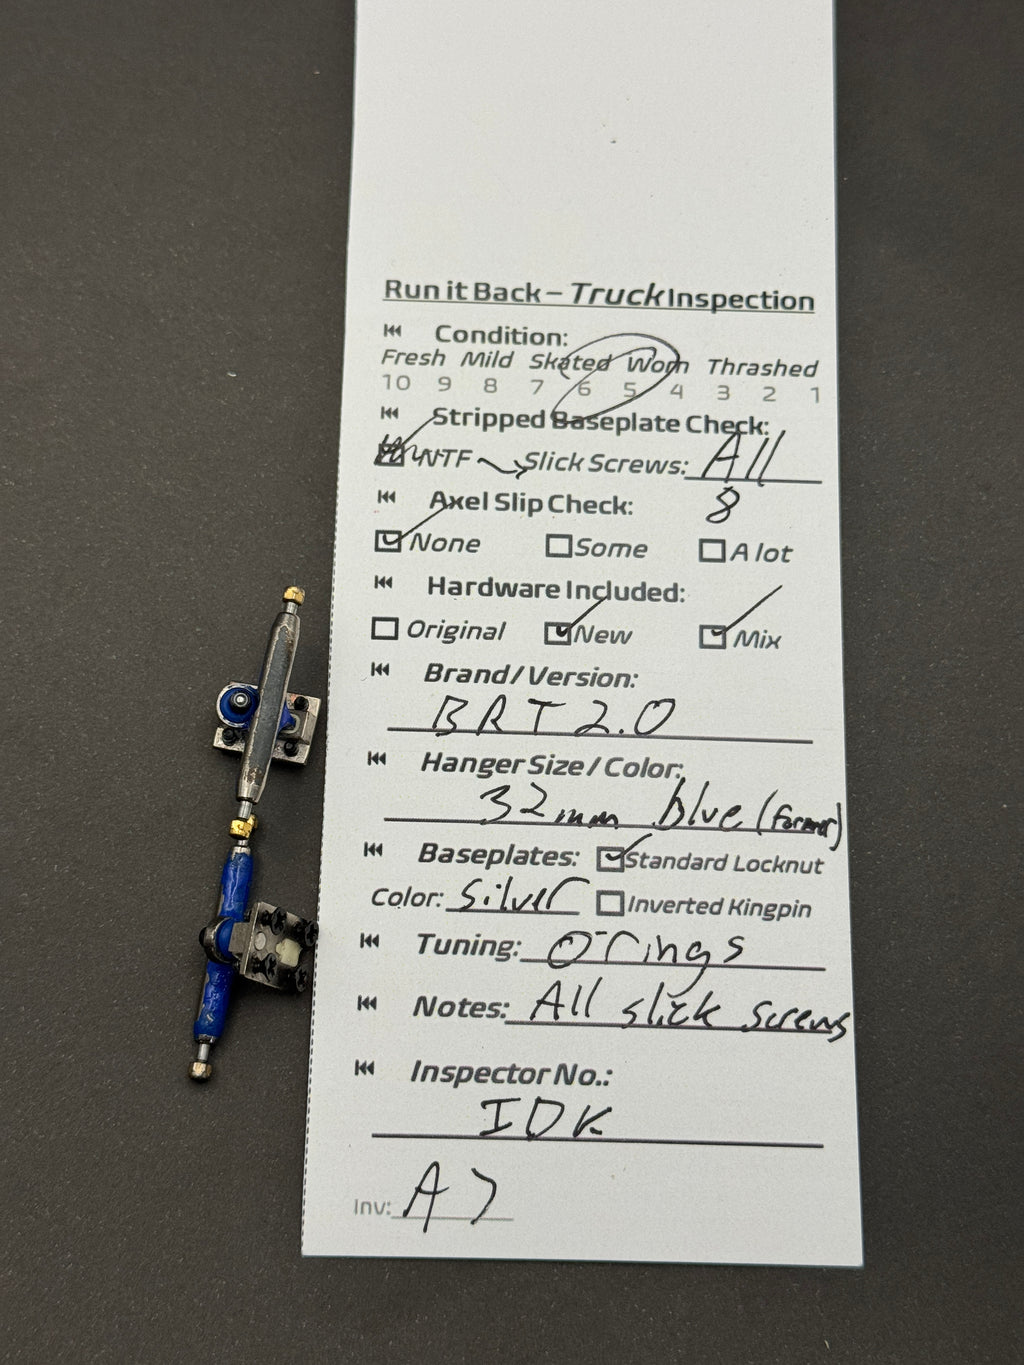 Run it Back – Truck Inspection
Condition:
Fresh Mild Skated Worn Thrashed
10 9 8 7 6 5 4 3 2 1
Stripped Baseplate Check:
NTF Slick Screws: All
8
Axel Slip Check:
None Some A lot
Hardware Included:
Original New Mix
Brand/Version:
BRT 2.0
Hanger Size/Color:
32mm blue (former)
Baseplates: Standard Locknut
Color: Silver Inverted Kingpin
Tuning: O-rings
Notes: All slick screws
Inspector No.:
IDK
Inv: A7